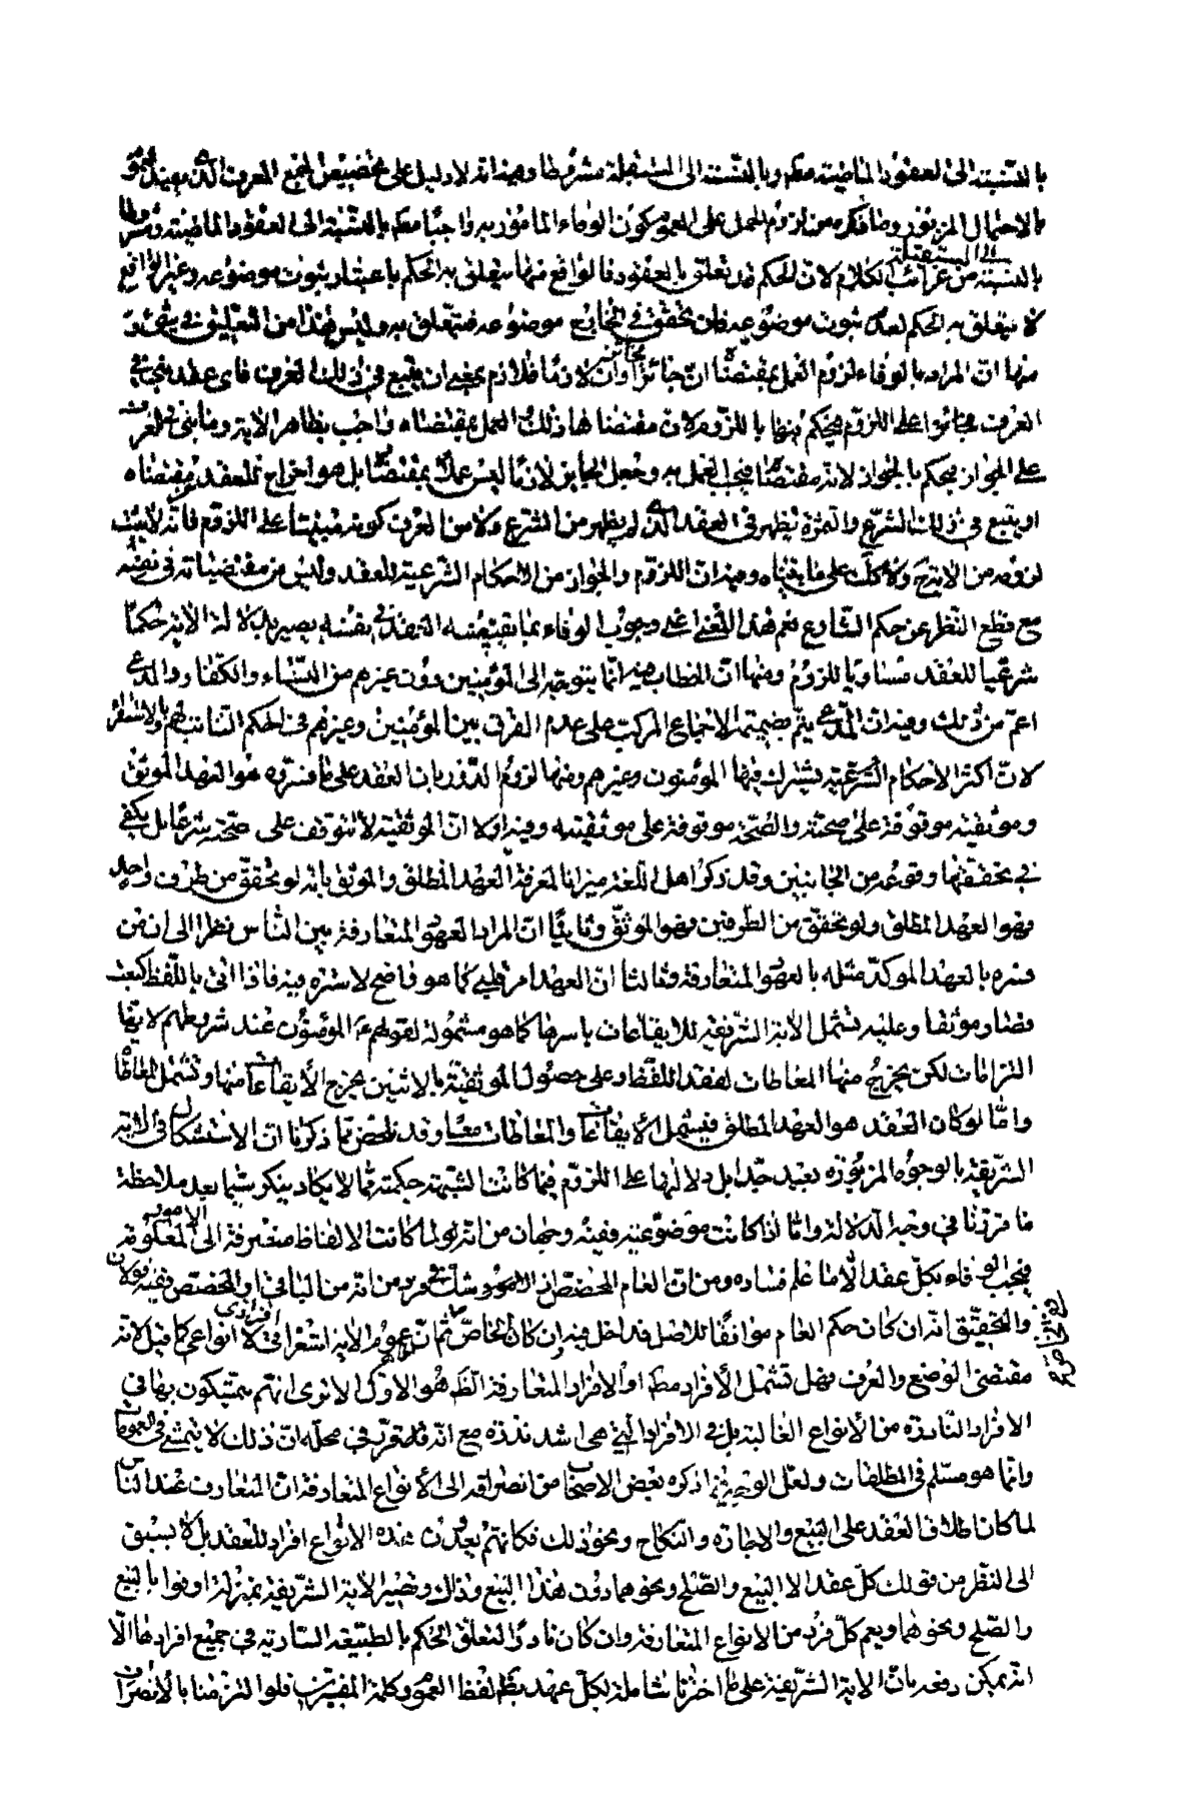 بالنسبة الى العقود الماضية مطلقا وبالنسبة الى المستقبلة مشروطا وفيه انه لا دليل على تخصيص الجمع المعرف الذى يفيد العموم
بالاحتمال المزبور وما ذكره من لزوم الحمل على العموم كون الوفاء المامور به واجبا مطلقا بالنسبة الى العقود الماضية ومشروطا
بالنسبة الى المستقبلة من غرائب الكلام لان الحكم قد تعلق بالعقود فالواقع منها يتعلق به الحكم باعتبار ثبوت موضوعه وغير الواقع
لا يتعلق به الحكم لعدم ثبوت موضوعه فان تحقق فى الخارج موضوعه فيتعلق به وليس هذا من التعليق فى شىء
منها ان المراد بالوفاء لزوم العمل بمقتضاه ان جائزا وان لازما فلازم يجب ان يتبع فى ذلك العرف فاى عقد
العرف على اللزوم فيحكم فيها باللزوم لان مقتضاها ذلك والعمل بمقتضاه واجب بظاهر الاية وما بنى العرف
على الجواز يحكم بالجواز لانه مقتضاه فيجب العمل به وجعل الجايز لازما ليس عملا بمقتضاه بل هو اخراج للعقد عن مقتضاه
او يتبع فى ذلك الشرع والثمرة يظهر فى العقد الذى لم يظهر من الشرع ولا من العرف كونه مبنيا على اللزوم فانه لا يثبت
لزومه من الاية ح ولا كل على ما بنياه وفيه ان اللزوم والجواز من الاحكام الشرعية للعقد وليس من مقتضياته فى نفسه
مع قطع النظر عن حكم الشارع نعم هذا المعنى اعنى وجوب الوفاء بما يقتضيه العقد فى نفسه يصير بدلالة الاية حكما
شرعيا للعقد مساويا للزوم ومنها ان الخطاب فيه انما يتوجه الى المؤمنين دون غيرهم من السفهاء والكفار والمدعى
اعم من ذلك وفيه ان المدعى يتم بضميمة الاجماع المركب على عدم الفرق بين المؤمنين وغيرهم فى الحكم الثابت لهم
لان اكثر الاحكام الشرعية يشترك فيها المؤمنون وغيرهم ومنها لزوم الدور بان العقد على ما فسروه هو العهد الموثق
وموثقيته موقوفة على صحته والصحة موقوفة على موثقيته وفيه اولا ان الموثقية لا تتوقف على صحته شرعا بل يكفى
فى تحققها وقوعه من الجانبين وقد ذكر اهل اللغة ميزانا لمعرفة العهد المطلق والموثق بانه لو تحقق من طرف واحد
فهو العهد المطلق ولو تحقق من الطرفين فهو الموثق وثانيا ان المراد العهود المتعارفة بين الناس نظرا الى ان من
فسره بالعهد الموكد مثله بالعهود المتعارفة وثالثا ان العهد امر قلبى كما هو واضح لا سترة فيه فاذا اتى باللفظ كبعت
فصار موثقا وعليه تشمل الاية الشريفة للايقاعات باسرها كما هو مشمولة لقولهم ع المؤمنون عند شروطهم لانها
التزامات لكن يخرج منها المعاطات لفقد اللفظ وعلى حصول الموثقية بالاثنين يخرج الايقاعات منها وتشمل المعاطاة
واما لو كان العقد هو العهد المطلق فيشمل الايقاعات والمعاطات معا وقد تلخص مما ذكرنا ان الاستشكال فى الاية
الشريفة بالوجوه المزبورة بعيد جدا بل دلالتها على اللزوم فيما كانت الشبهة حكمية مما لا يكاد ينكر سيما بعد ملاحظة
ما قررنا فى وجه الدلالة واما اذا كانت موضوعية ففيه وجهان من انه لما كانت الالفاظ منصرفة الى الامور المعلومة
فيجب الوفاء بكل عقد الا ما علم فساده ومن ان العام المخصص اذا شك فى فرد من انه من الباقى او المخصص ففيه قولان
والتحقيق انه ان كان حكم العام موافقا للاصل فداخل فيه وان كان الخاص ثم ان عموم الاية استغراقى افرادى لا انواعى كما قيل لانه
مقتضى الوضع والعرف فهل تشمل الافراد مطلقا او الافراد المتعارفة الظ هو الاول الا ترى انهم يتمسكون بها فى
الافراد النادرة من الانواع الغالبة بل فى الافراد التى هى اشد ندرة مع انه قد تقرر فى محله ان ذلك لا يتمشى فى العمومات
وانما هو مسلم فى المطلقات ولعل الوجه فيما ذكره بعض الاصحاب من انصرافه الى الانواع المتعارفة ان المتعارف عند الناس
لما كان اطلاق العقد على البيع والاجارة والنكاح ونحو ذلك فكانهم يعدون هذه الانواع افراد للعقد بل لا يسبق
الى النظر من قولك كل عقد الا البيع والصلح ونحوهما دون هذا البيع وذاك وتصير الاية الشريفة بمنزلة اوفوا بالبيع
والصلح ونحوهما ويعم كل فرد من الانواع المتعارفة وان كان نادرا لتعلق الحكم بالطبيعة السارية فى جميع افرادها الا
انه يمكن دفعه بان الاية الشريفة على ما اخترنا شاملة لكل عهد بظ لفظ العموم وكلمة المفسرين فلو التزمنا بالانصراف